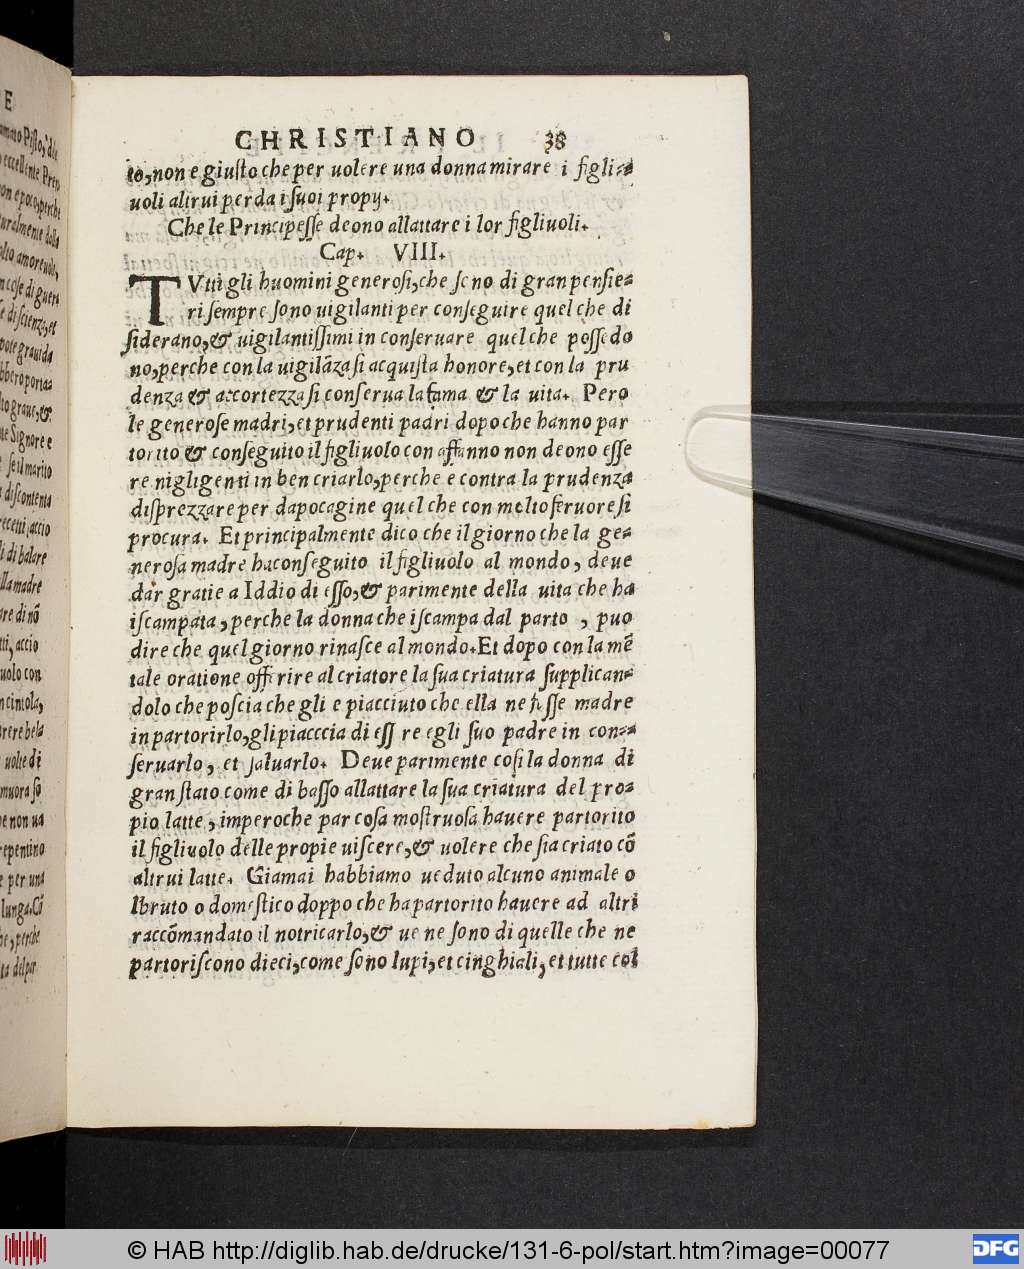 E
CHRISTIANO 38
to, non e giusto che per uolere una donna mirare i figli=
uoli altrui perda i suoi propij.
Che le Principesse deono allattare i lor figliuoli.
Cap. VIII.
TVtti gli huomini generosi, che sono di gran pensie=
ri sempre sono uigilanti per conseguire quel che di
siderano, & uigilantissimi in conseruare quel che possedo
no, perche con la uigilāza si acquista honore, et con la pru
denza & accortezza si conserua la fama & la uita. Pero
le generose madri, et prudenti padri dopo che hanno par
torito & conseguito il figliuolo con affanno non deono esse
re nigligenti in ben criarlo, perche e contra la prudenza
disprezzare per dapocagine quel che con molto feruore si
procura. Et principalmente dico che il giorno che la ge=
nerosa madre ha conseguito il figliuolo al mondo, deue
dar gratie a Iddio di esso, & parimente della uita che ha
iscampata, perche la donna che iscampa dal parto , puo
dire che quel giorno rinasce al mondo. Et dopo con la mē
tale oratione offerire al criatore la sua criatura supplican=
dolo che poscia che gli e piacciuto che ella ne fosse madre
in partorirlo, gli piacccia di essere egli suo padre in con=
seruarlo, et saluarlo. Deue parimente cosi la donna di
gran stato come di basso allattare la sua criatura del pro=
pio latte, imperoche par cosa mostruosa hauere partorito
il figliuolo delle propie uiscere, & uolere che sia criato cō
altrui latte. Giamai habbiamo ueduto alcuno animale o
lbruto o domestico doppo che ha partorito hauere ad altri
raccōmandato il notricarlo, & ue ne sono di quelle che ne
partoriscono dieci, come sono lupi, et cinghiali, et tutte col
© HAB http://diglib.hab.de/drucke/131-6-pol/start.htm?image=00077
DFG